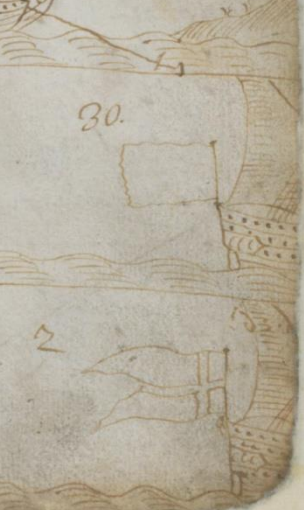 30.
2